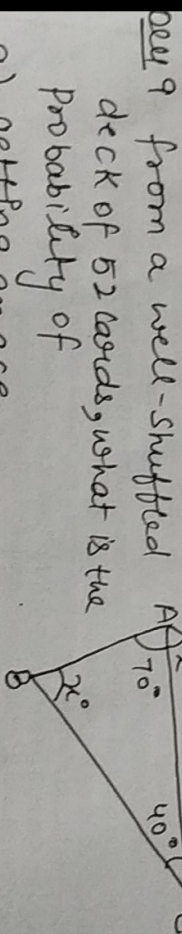 from a well-shuffled
deck of 52 cards, what is the
probability of
a) getting an ace
A
x
70°
40°
B
x°